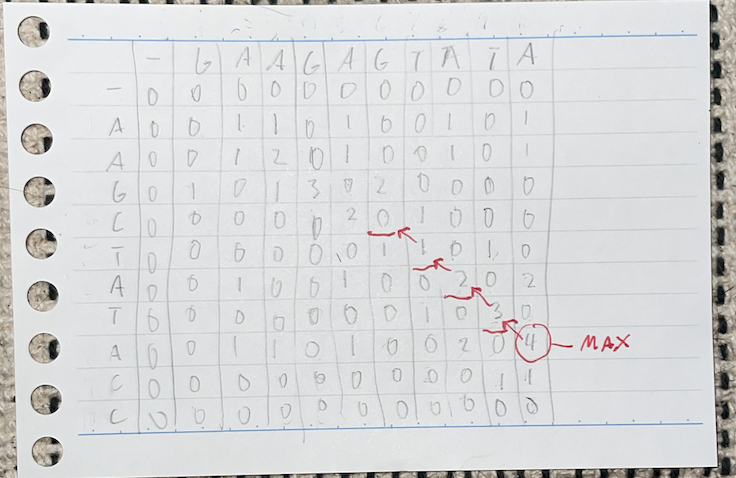 - G A A G A G T A T A
- 0 0 0 0 0 0 0 0 0 0 0
A 0 0 1 1 0 1 0 0 1 0 1
A 0 0 1 2 0 1 0 0 1 0 1
G 0 1 0 1 3 0 2 0 0 0 0
C 0 0 0 0 0 2 0 1 0 0 0
T 0 0 0 0 0 0 1 1 0 1 0
A 0 0 1 0 0 1 0 0 2 0 2
T 0 0 0 0 0 0 0 1 0 3 0
A 0 0 1 1 0 1 0 0 2 0 4 MAX
C 0 0 0 0 0 0 0 0 0 1 1
C 0 0 0 0 0 0 0 0 0 0 0